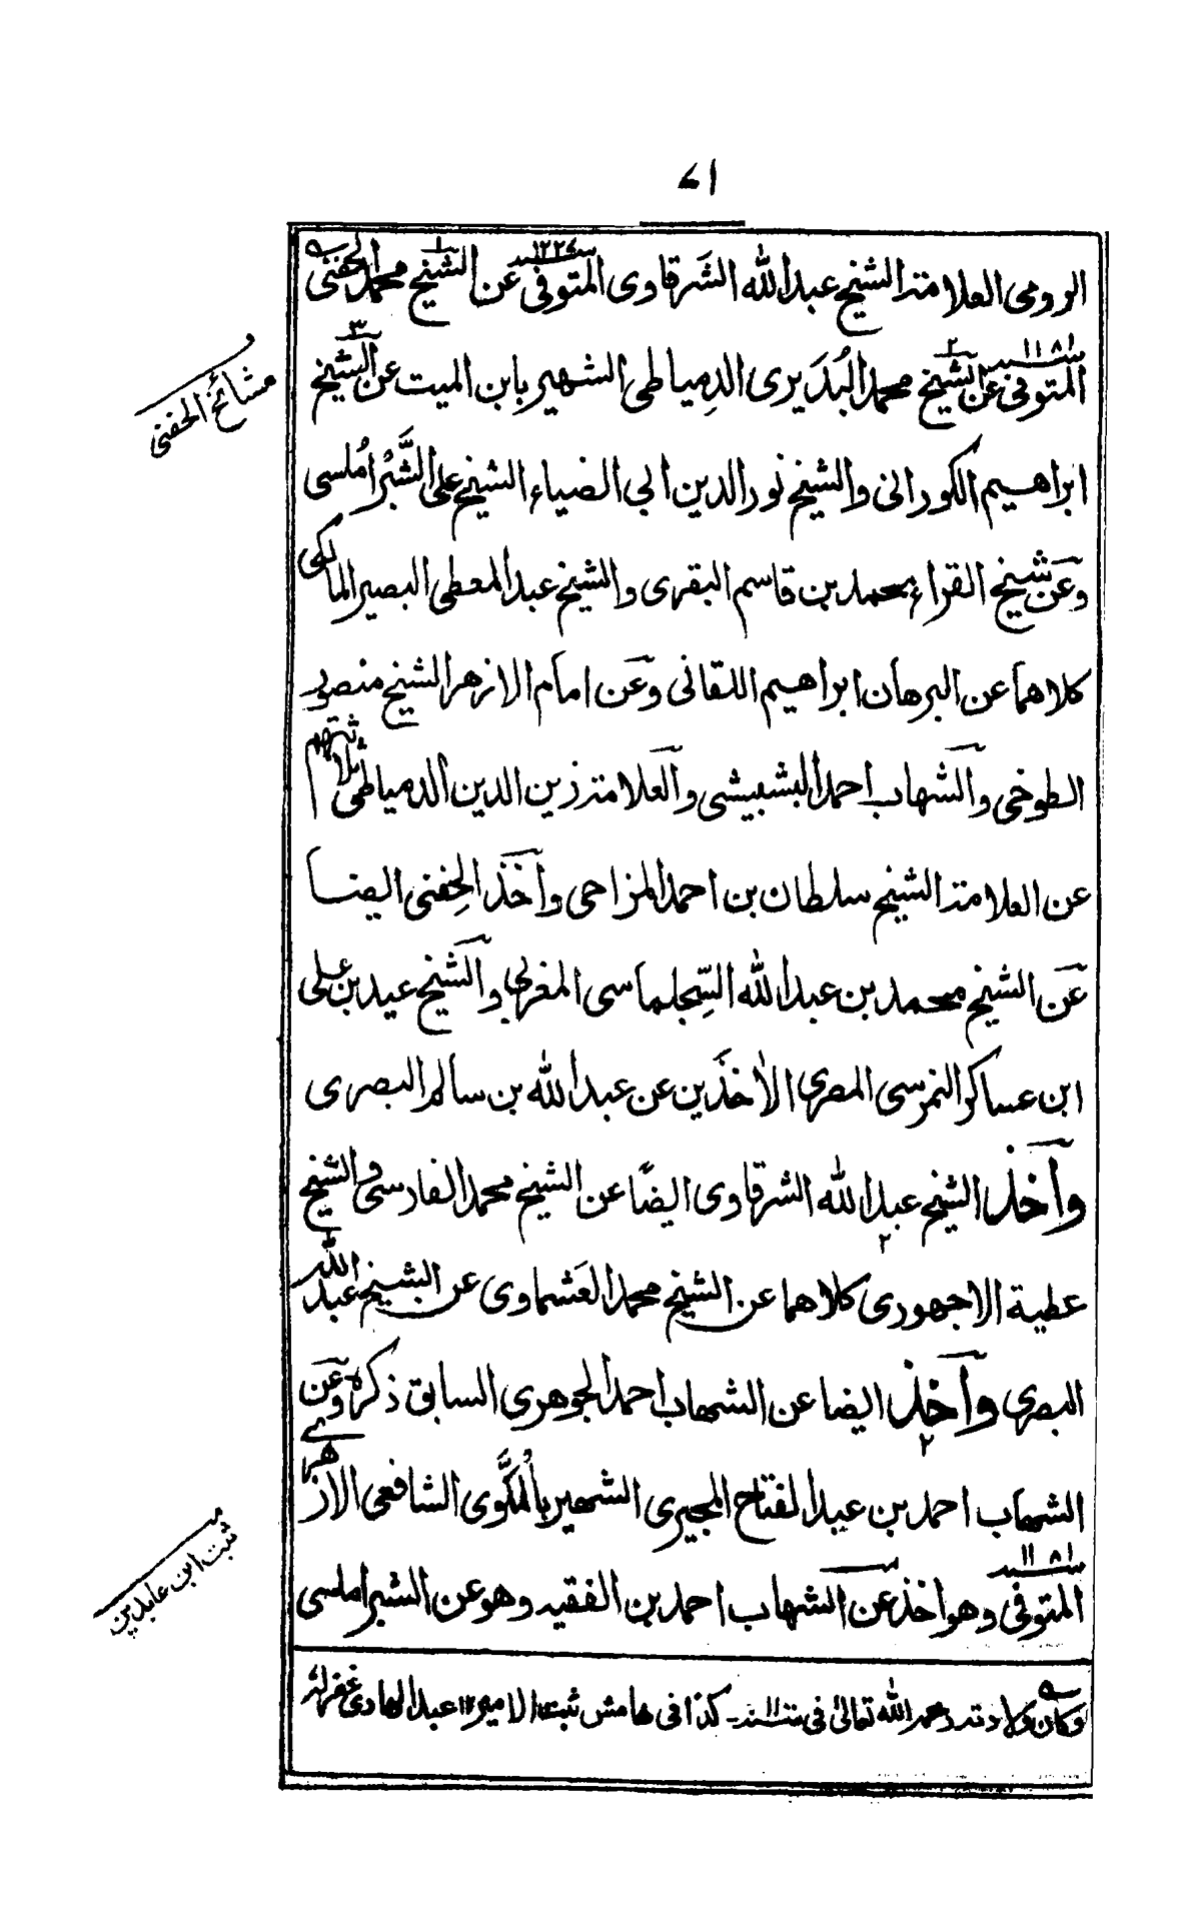 ۷۱
الرومی العلامة الشیخ عبدالله الشَرقاوی المتوفی ۱۲۲۷ عن الشیخ محمد الحفنی
المتوفی ۱۱۸۱ عن الشیخ محمد البُدَیری الدِمیاطی الشهیر بابن المیت عن الشیخ
ابراهیم الکورانی والشیخ نورالدین ابی الضیاء الشیخ علی الشَّبْرامُلسی
وعن شیخ القراء محمد بن قاسم البقری والشیخ عبدالمعطی البصیر المالکی
کلاهما عن البرهان ابراهیم اللقانی وعن امام الازهر الشیخ منصور
الطوخی والشهاب احمد البشبیشی والعلامة زین الدین الدمیاطی ثلاثتهم
عن العلامة الشیخ سلطان بن احمد المزاحی وأخذ الحِفنی ایضا
عن الشیخ محمد بن عبدالله السِّجلماسی المغربی والشیخ عید بن علی
ابن عساکر النمرسی المصری الآخذَین عن عبدالله بن سالم البصری
وأخذ الشیخ عبدالله الشرقاوی ایضًا عن الشیخ محمد الفارسی والشیخ
عطیة الاجهوری کلاهما عن الشیخ محمد العَشماوی عن الشیخ عبدالله
البصری وأخذ ایضا عن الشهاب احمد الجوهری السابق ذکره وعن
الشهاب احمد بن عبدالفتاح المجیری الشهیر بالمُلَّوی الشافعی الازهری
المتوفی ۱۱۸۱ وهو اخذ عن الشهاب احمد بن الفقیه وهو عن الشبراملسی
وکان ولادته رحمه الله تعالیٰ فی سنة کذا فی هامش ثبت الامیر ۱۲ عبدالهادی غفرله
مشائخ الحفنی
ثبت ابن عابدین